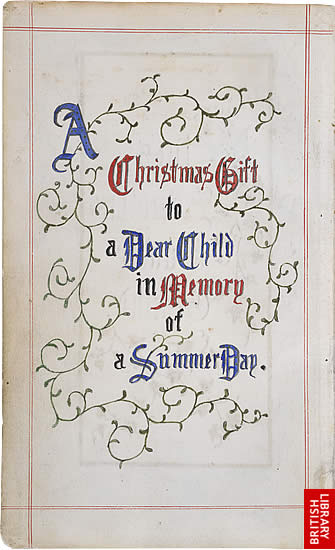 A
Christmas Gift
to
a Dear Child
in Memory
of
a Summer Day.
BRITISH
LIBRARY